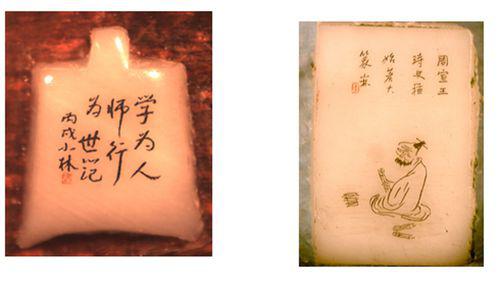 学为人
师行
为世范
丙戌小林
周宣王
時史籀
始著大
篆